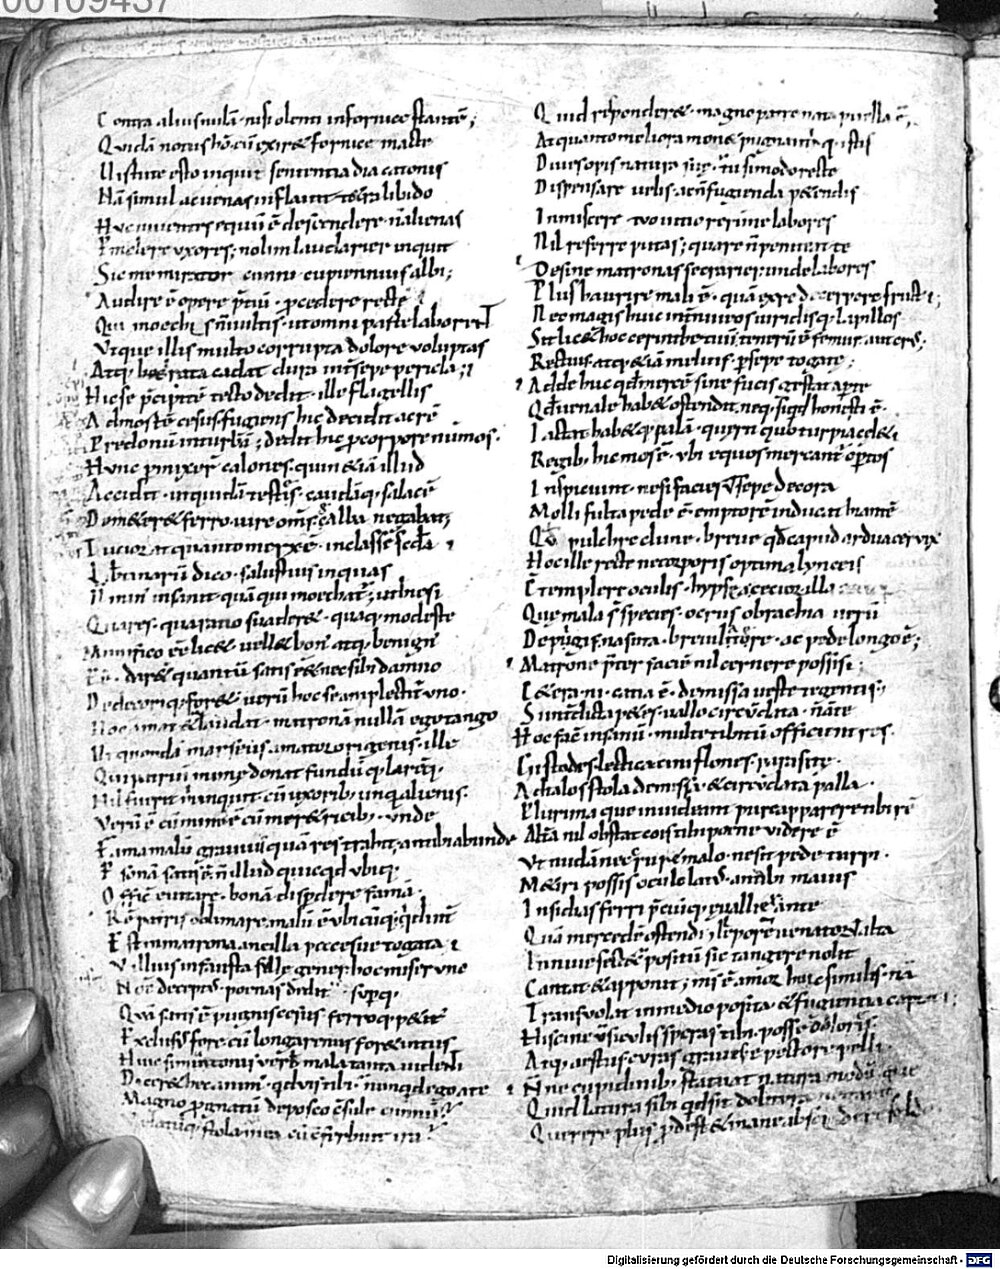 00109437
Contra alius nulla nisi olenti in fornice stante;
Quidā notus hō cū exir& fornice macte
Uirtute esto inquit sententia dia catonis
Nā simul ac uenas inflauit tetra libido
Huc iuuenes equū ē descendere n̄ alienas
Pmolere uxores; nolim laudarier inquit
Sic me mirator cunni cupiennius albi;
Audire ē opere p̄ciū pcedere recte
Qui moechis n̄ uultis ut omni parte laborent
Utque illis multo corrupta dolore uoluptas
Atq; hec rara cadat dura int sepe pericla;
Hic se p̄cipitē tecto dedit ille flagellis
Ad mortē cesus fugiens hic decidit acrē
Predonū in turbā; dedit hic p corpore nūmos.
Hunc pminxer calones quin &iā illud
Accidit
Dem&er& ferro iure oms galba negabat;
Tutior at quanto merx ē in classe scda
Libtinarū dico salustius in quas
N min insanit quā qui moechat; ut hic si
Qua res qua ratio suader& quaq modeste
Munifico ēē lic& uell& bon atq; benign
dar& quantū satis ēē& nec sibi damno
Dedecoriq; for& uerū hoc se amplectit uno.
Hoc amat & laudat matronā nullā ego tango
Ut quondā marseus amator origenis ille
Qui patriū mime donat fundūq; larēq;
Nil fuerit m̄ inquit cū uxorib; unq alienis.
Verū ē cū mimis ē cū mer&ricib; unde
Fama malū grauius quā res trahit; an tibi abunde
Psonā satis ē n̄ illud quicqd ubiq;
Officit euitare bonā disperdere famā
Rē patris oblimare malū ē ubi cūq; qd int
Est in matrona ancilla peccesue togata
Villius in fausta sylle gener hoc miser uno
Noē decept; poenas dedit usq; supq;
Qua satis ē pugnis cesus ferroq; p&it;
Exclus; fore cū longarenus for& intus
Huic si mutonis uerbis mala tanta uidenti
Dicer& hec anim; qd uis tibi nunq; d ego a te
Magno pgnatū deposco cōsule cunnū
Velatūq; stola mea cū cferbuit ira
Quid responder& magno patre nata puella ē;
At quanto meliora mon& pugnantiaq; istis
Diues opis natura sue tu si modo recte
Dispensare uelis ac n̄ fugienda p&endis
Inmiscere tuo uitio rerūne labores
Nil referre putas; quare n̄ peniteat te
Desine matronas sectarier unde laboris
Plus haurire mali ē quā ex re decerpere fructus;
Nec magis huic int niueos uiridisq; lapillos
Sit lic& hoc cerinthe tuū tenerū ē femur aut crus;
Rectius atq; &iā melius psepe togate;
Adde huc qd mercē sine fucis gestat aperte
Qd uenale hab& ostendit neq; siqd honesti ē
Iactat hab&q; palā querit quo turpia cel&;
Regib; hic mos ē ubi equos mercant optos
Inspiciunt ne si facies ut sepe decora
Molli fulta pede ē emptore inducat hiantē
Qd pulchre clune breue qd caput ardua ceruix
Hoc illi recte ne corporis optima lynceis
Cōtemplere oculis hypsea cecior illa
Que mala s̄ species o crus o brachia uerū
Depugis nasuta breui latere ac pede longo ē;
Matrone p̄ter faciē nil cernere possis;
C&era ni catia ē demissa ueste tegentis;
Si inrdicta p&es uallo circūdata nā te
Hoc facit insanū multe tibi tū officient res.
Custodes lectica ciniflones parasite.
Ad talos stola demissa & circūdata palla.
Plurima que inuideant pure apparere tibi rē
Altra nil obstat cois tibi pene uidere ē
Ut nudā ne crure malo ne sit pede turpi.
M&iri possis oculo lat; an tibi mauis
Insidias fieri p̄ciūq; euelli ante
Quā mercedē ostendi; leporē uenator ut alta
In niue sect& positū sic tangere nolit
Cantat & apponit; m̄s ē amor huic similis nā
Transuolat in medio posita & fugientia captat;
Hiscine uersiculis speras tibi posse dolores
Atq; aestus curas graues e pectore pelli
Nne cupidinib; statuat natura modū que
Quid latura sibi qd sit dolitura negatū
Querere plus pdest & inane abscindere soldo
Digitalisierung gefördert durch die Deutsche Forschungsgemeinschaft - DFG